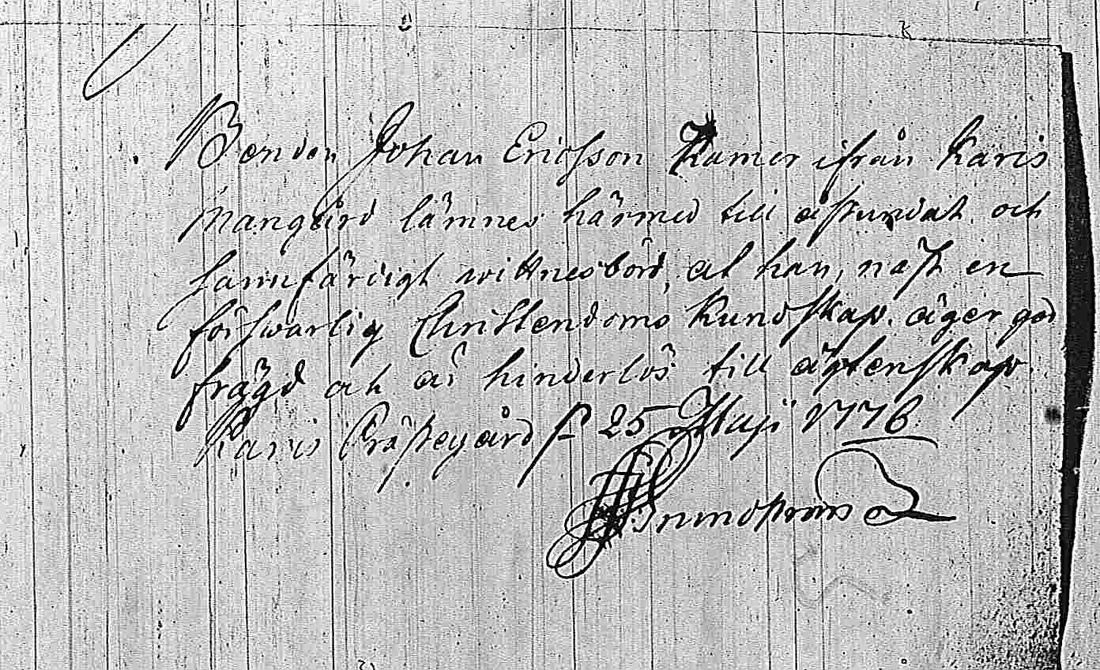 Bonden Johan Ericsson Kamer ifrån Karis
Mangård lämnes härmed till åstundat och
sannfärdigt wittnesbörd, at han, näst en
förswarlig Christendoms Kundskap, äger god
frägd och är hinderlös till ägtenskap.
Karis Prästegård d 25 Maji 1776.